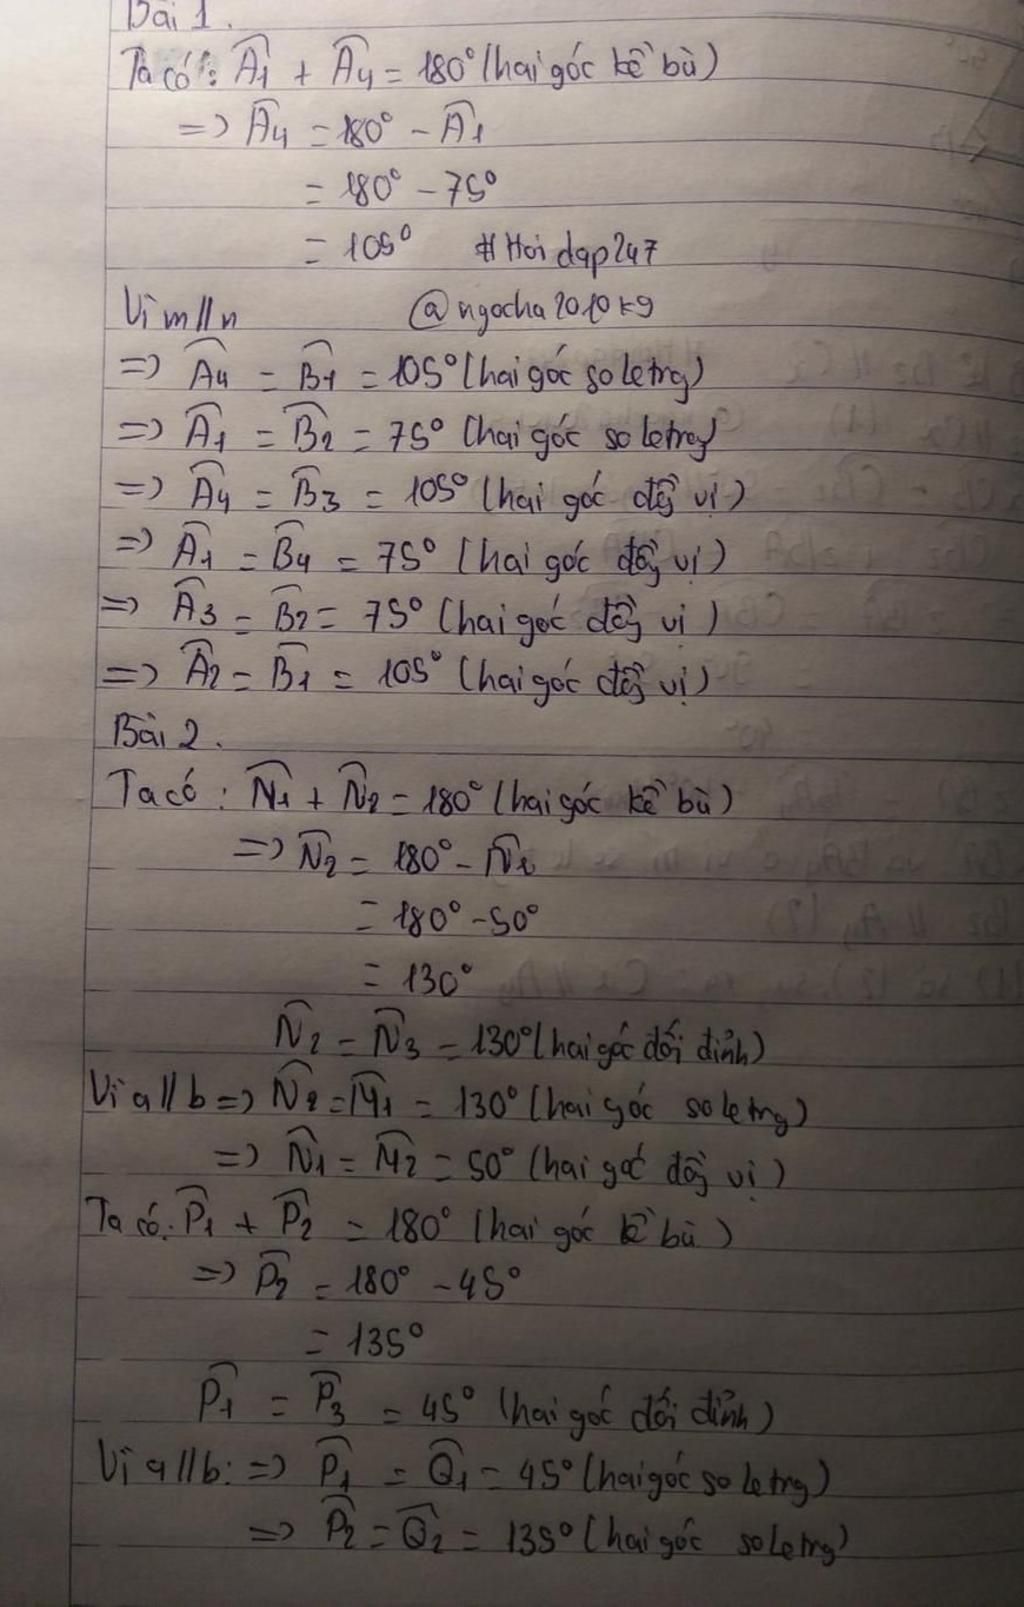 Bài 1.
Ta có: Â1 + Â4 = 180° (hai góc kề bù)
=> Â4 = 180° - Â1
= 180° - 75°
= 105° #Hoidap247
Vì m//n @ngocha2010kg
=> Â4 = B̂1 = 105° (hai góc so le trg)
=> Â1 = B̂2 = 75° (hai góc so le trg)
=> Â4 = B̂3 = 105° (hai góc đồg vị)
=> Â1 = B̂4 = 75° (hai góc đồg vị)
=> Â3 = B̂2 = 75° (hai góc đồg vị)
=> Â2 = B̂1 = 105° (hai góc đồg vị)
Bài 2.
Ta có: N̂1 + N̂2 = 180° (hai góc kề bù)
=> N̂2 = 180° - N̂1
= 180° - 50°
= 130°
N̂2 = N̂3 = 130° (hai góc đối đỉnh)
Vì a//b => N̂2 = M̂1 = 130° (hai góc so le trg)
=> N̂1 = M̂2 = 50° (hai goć đồg vị)
Ta có: P̂1 + P̂2 = 180° (hai góc kề bù)
=> P̂2 = 180° - 45°
= 135°
P̂1 = P̂3 = 45° (hai góc đối đỉnh)
Vì a//b: => P̂1 = Q̂1 = 45° (hai góc so le trg)
=> P̂2 = Q̂2 = 135° (hai góc so le trg)